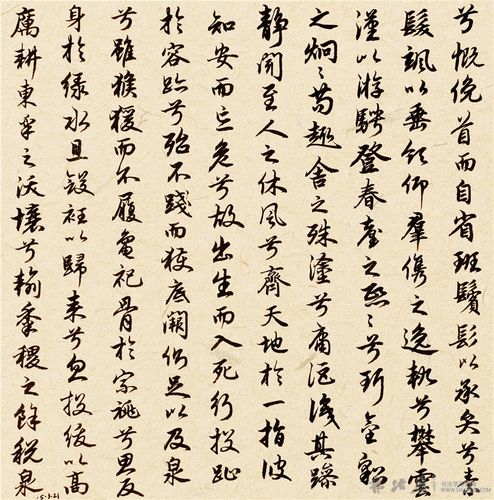 兮慨俛首而自省班鬢髟以承弁兮素
髮颯以垂領仰羣儁之逸軌兮攀雲
漢以游騁登春臺之熙〻兮珥金貂
之炯〻苟趣舍之殊塗兮庸詎識其躁
靜聞至人之休風兮齊天地於一指彼
知安而忘危兮故出生而入死行投趾
於容跡兮殆不踐而獲底闕側足以及泉
兮雖猴猨而不履龜祀骨於宗祧兮思反
身於綠水且斂衽以歸來兮忽投紱以高
厲耕東皋之沃壤兮輸黍稷之餘稅泉
15.1.21